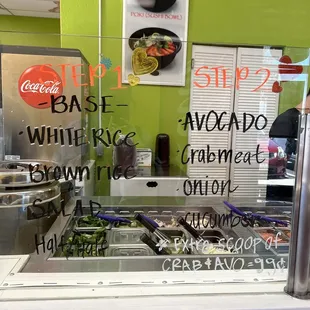 POKI SUSHI BOWL
Coca-Cola
STEP 1
-BASE-
-WHITE RICE
-Brown rice
-SALAD
-Half-Half
STEP 2
-AVOCADO
-Crabmeat
-onion
-cucumber
*Extra scoop of
CRAB+AVO=99¢